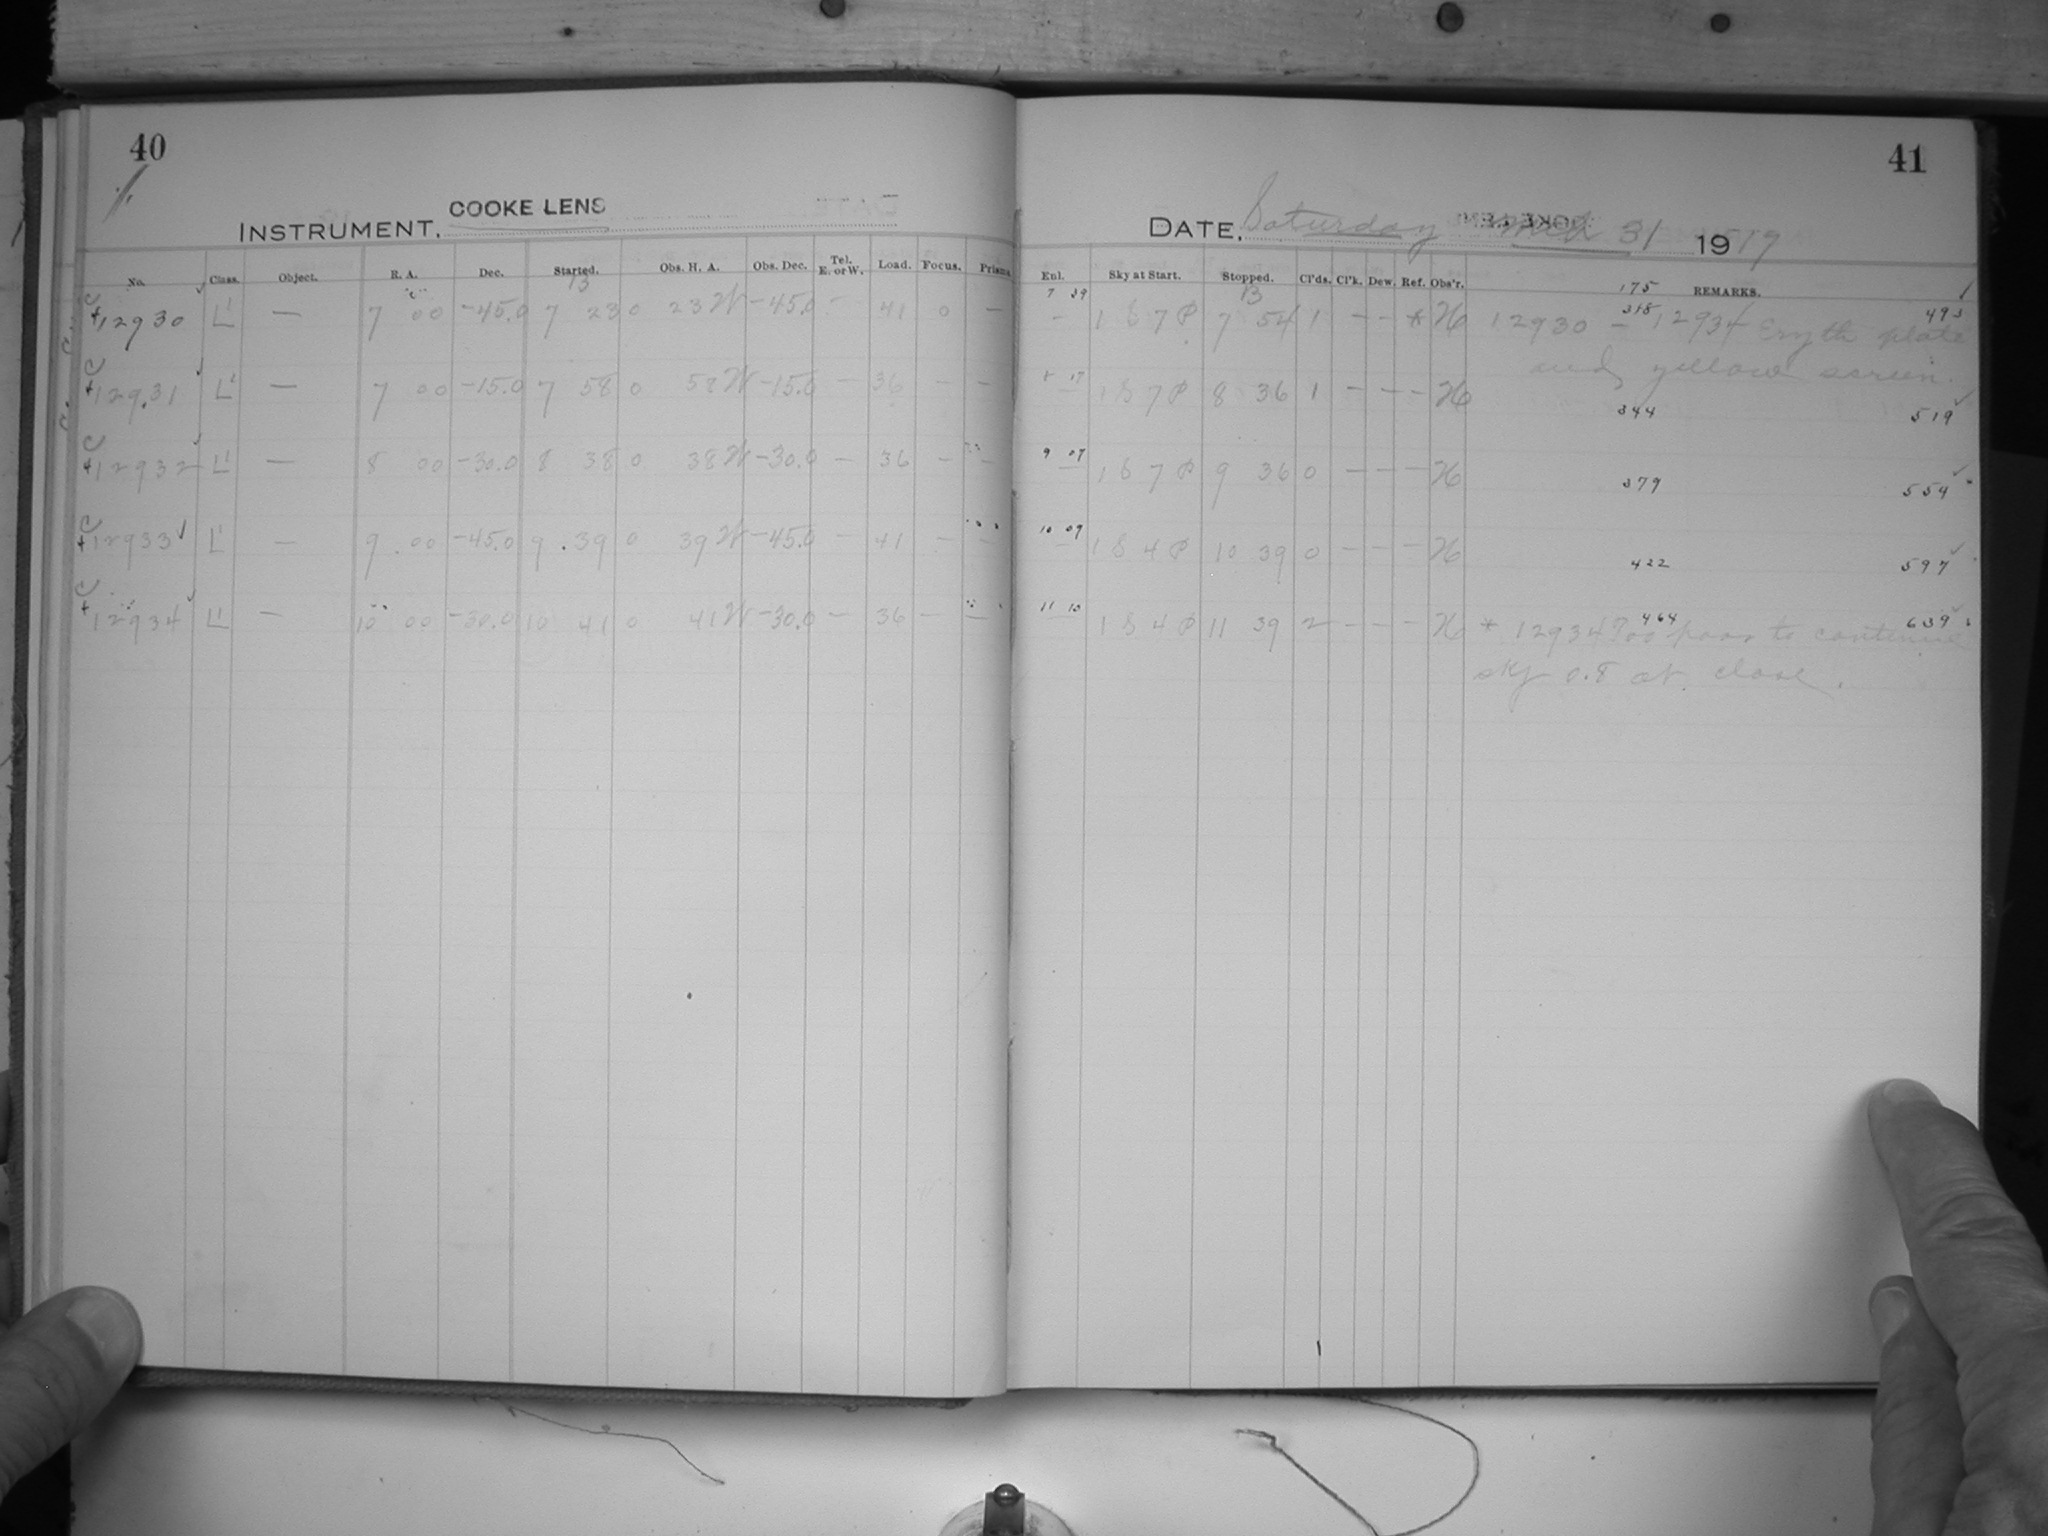 40
INSTRUMENT. COOKE LENS
No. Class. Object. R. A. Dec. Started. Obs. H. A. Obs. Dec. Tel. E. or W. Load. Focus. Prisms.
13
12930 L' — 7 00 -45.0 7 23 0 23 W -45.0 - 41 0 —
12931 L' — 7 00 -15.0 7 58 0 58 W -15.0 — 36 - -
12932 L' — 8 00 -30.0 8 38 0 38 W -30.0 — 36 - -
12933 L' — 9 00 -45.0 9 39 0 39 W -45.0 — 41 - -
12934 L' — 10 00 -30.0 10 41 0 41 W -30.0 — 36 — -
41
DATE. Saturday 31 1917
Enl. Sky at Start. Stopped. Cl'ds. Cl'k. Dew. Ref. Obs'r. REMARKS.
13 175
7 39 318 493
- 1 S 7 P 7 54 1 - - * H 12930 - 12934 Eryth plate
and yellow screen.
8 17
1 S 7 P 8 36 1 - - - H 344 519
9 07
1 S 7 P 9 36 0 - - - H 379 554
10 09
1 S 4 P 10 39 0 - - - H 422 597
11 10 464 639
1 S 4 P 11 39 2 - - - H * 12934 Too poor to continue
sky 0.8 at close.